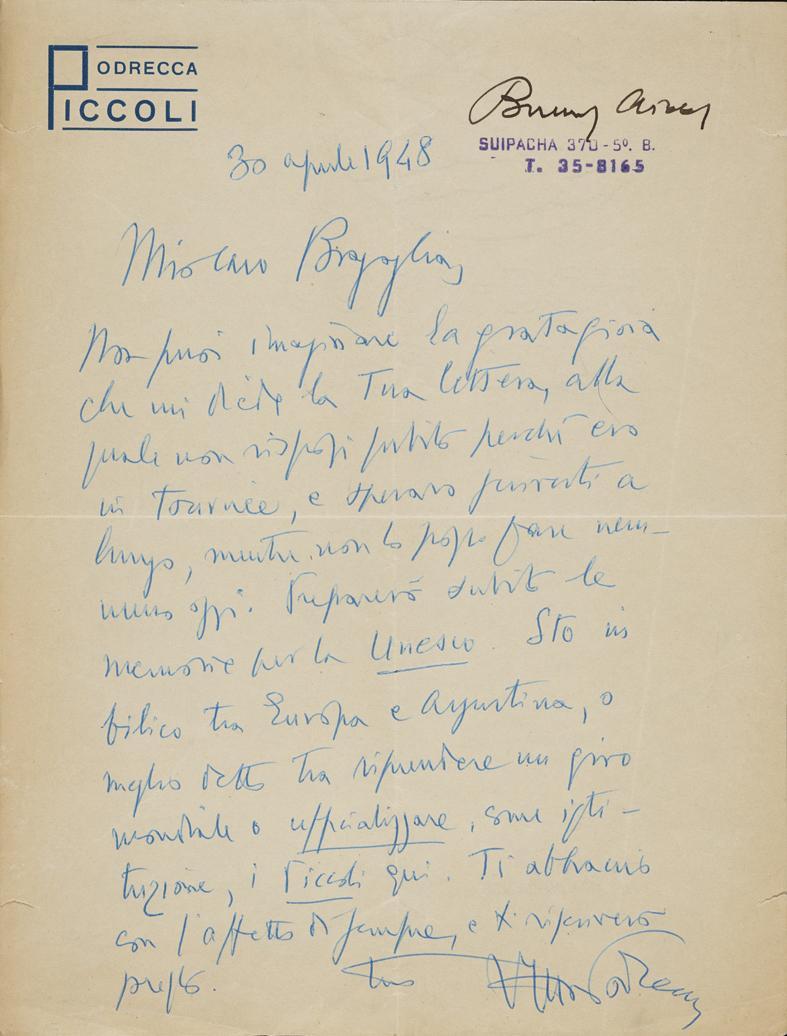 PODRECCA
PICCOLI
Buenos Aires
SUIPACHA 370 - 5º. B.
T. 35-8165
30 aprile 1948
Mio caro Bragaglia,
Non puoi imaginare la grata gioia
che mi diede la Tua lettera, alla
quale non risposi subito perché ero
in tournée, e speravo scriverti a
lungo, mentre non lo posso fare nem-
meno oggi. Preparerò subito le
memorie per la Unesco. Sto in
bilico tra Europa e Argentina, o
meglio detto tra riprendere un giro
mondiale o ufficializzare, come isti-
tuzione, i Piccoli qui. Ti abbraccio
con l'affetto di sempre, e ti riscriverò
presto. Tuo Vittorio Podrecca